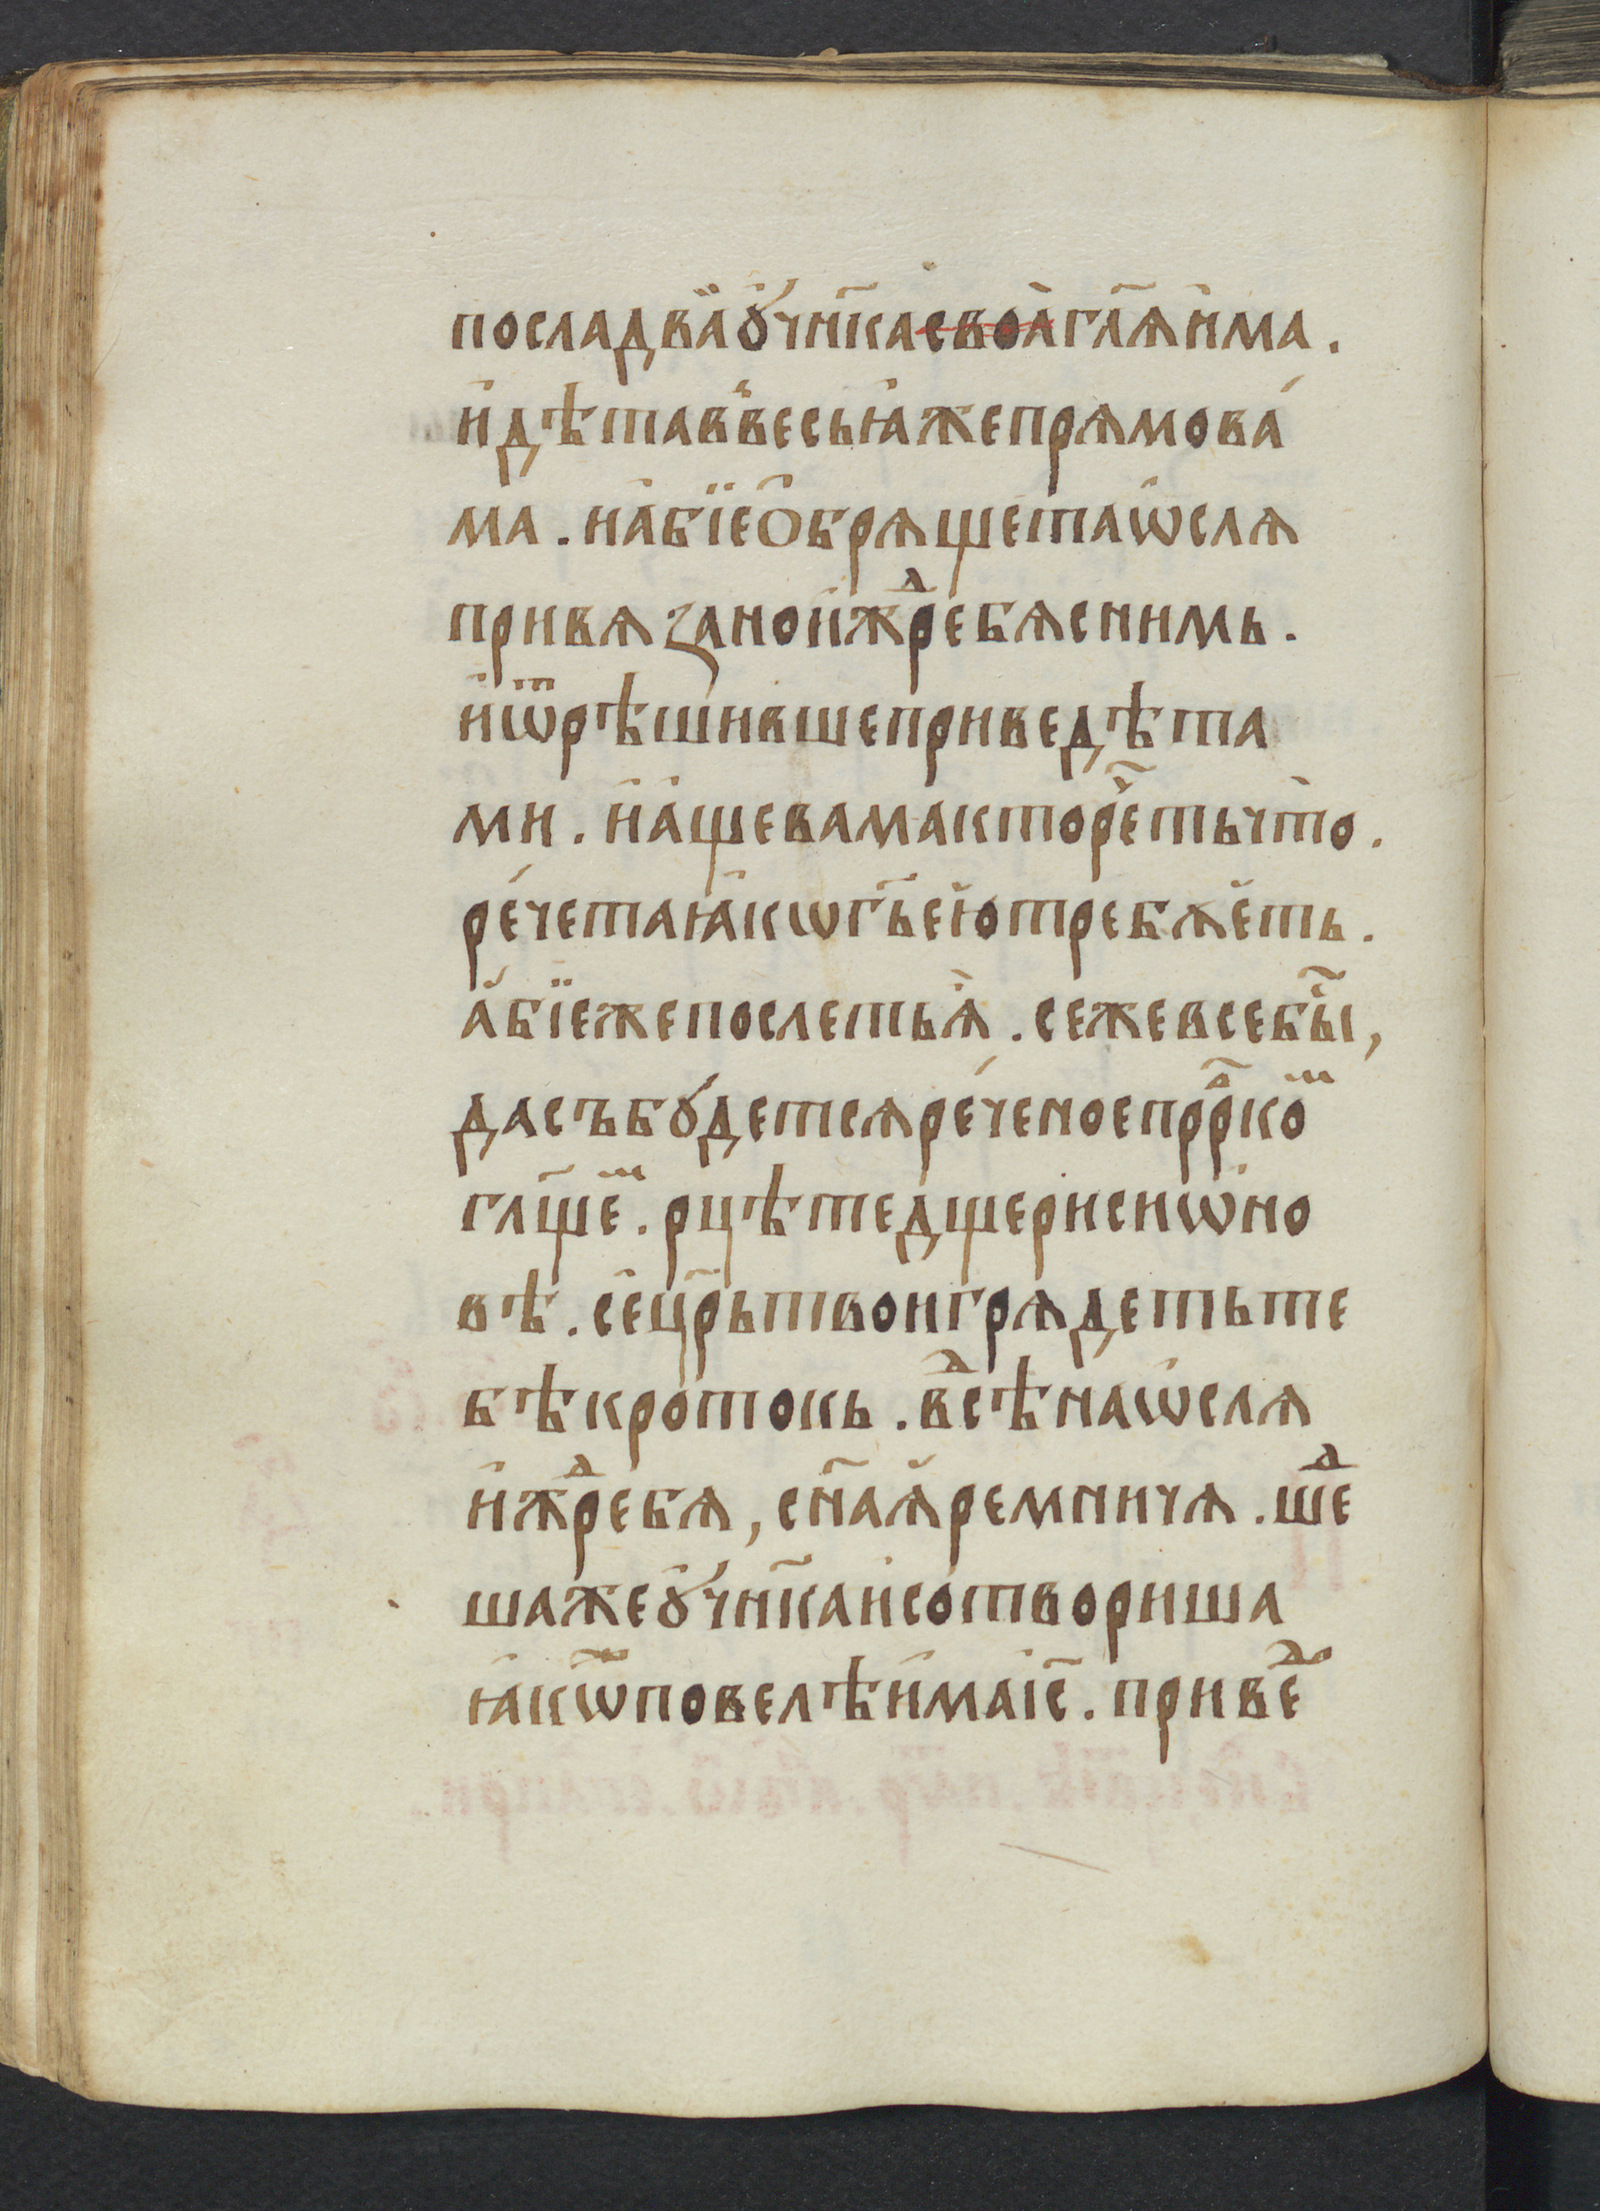 посладва̀ꙋ҆чн҃касвоа̀гл҃ѧи҆ма.
и҆дѣтавъвесьꙗ҆жепрѧмова́
ма. иа҆бїеѻ҆брѧщетаѡ҆слѧ
привѧзанои҆жⷣребѧснимь.
и҆ѿрѣшившеприведѣта
ми. и҆а҆щевамакторе҃тьчто̀.
ре́четаꙗ҆кѡгь҃е҆ютребꙋе҆ть.
а҆бїежепослетьѧ̀. сежевсебы҃,
дасъбꙋ́детсѧре́ченоепрⷪ҇ркоⷨ
гл҃щеⷨ. рцѣтедщерисиѡ҆но
вѣ. се҆цр҃ьтвоигрѧдетьте
бѣкротокь. вⷣсѣнаѡ҆слѧ
и҆жⷣребѧ, сн҃аꙗ҆ремничѧ. шеⷣ
шажеꙋ҆чн҃каи҆сотвориша
ꙗ҆кѡⷤповелѣи҆маіс҃. привеⷣ